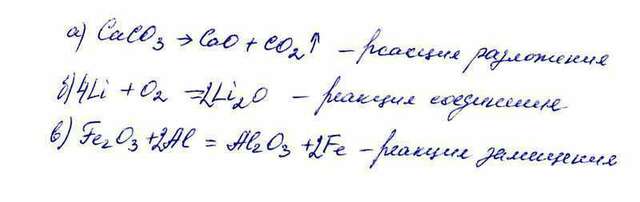 а) CaCO₃ → CaO + CO₂↑ – реакция разложения
б) 4Li + O₂ = 2Li₂O – реакция соединение
в) Fe₂O₃ + 2Al = Al₂O₃ + 2Fe – реакция замещения